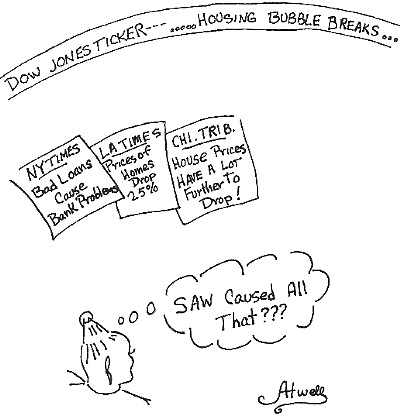 DOW JONES TICKER--- .....HOUSING BUBBLE BREAKS...
NY TIMES
Bad Loans
Cause
Bank Problems
LA TIMES
Prices of
Homes
Drop
25%
CHI. TRIB.
House Prices
HAVE A LOT
Further To
Drop!
SAW Caused All
That???
Atwell